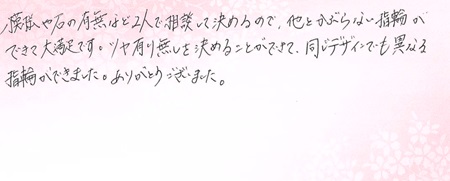 模様や石の有無など2人で相談して決めるので、他とかぶらない指輪が
できて大満足です。ツヤ有り無しを決めることができて、同じデザインでも異なる
指輪ができました。ありがとうございました。